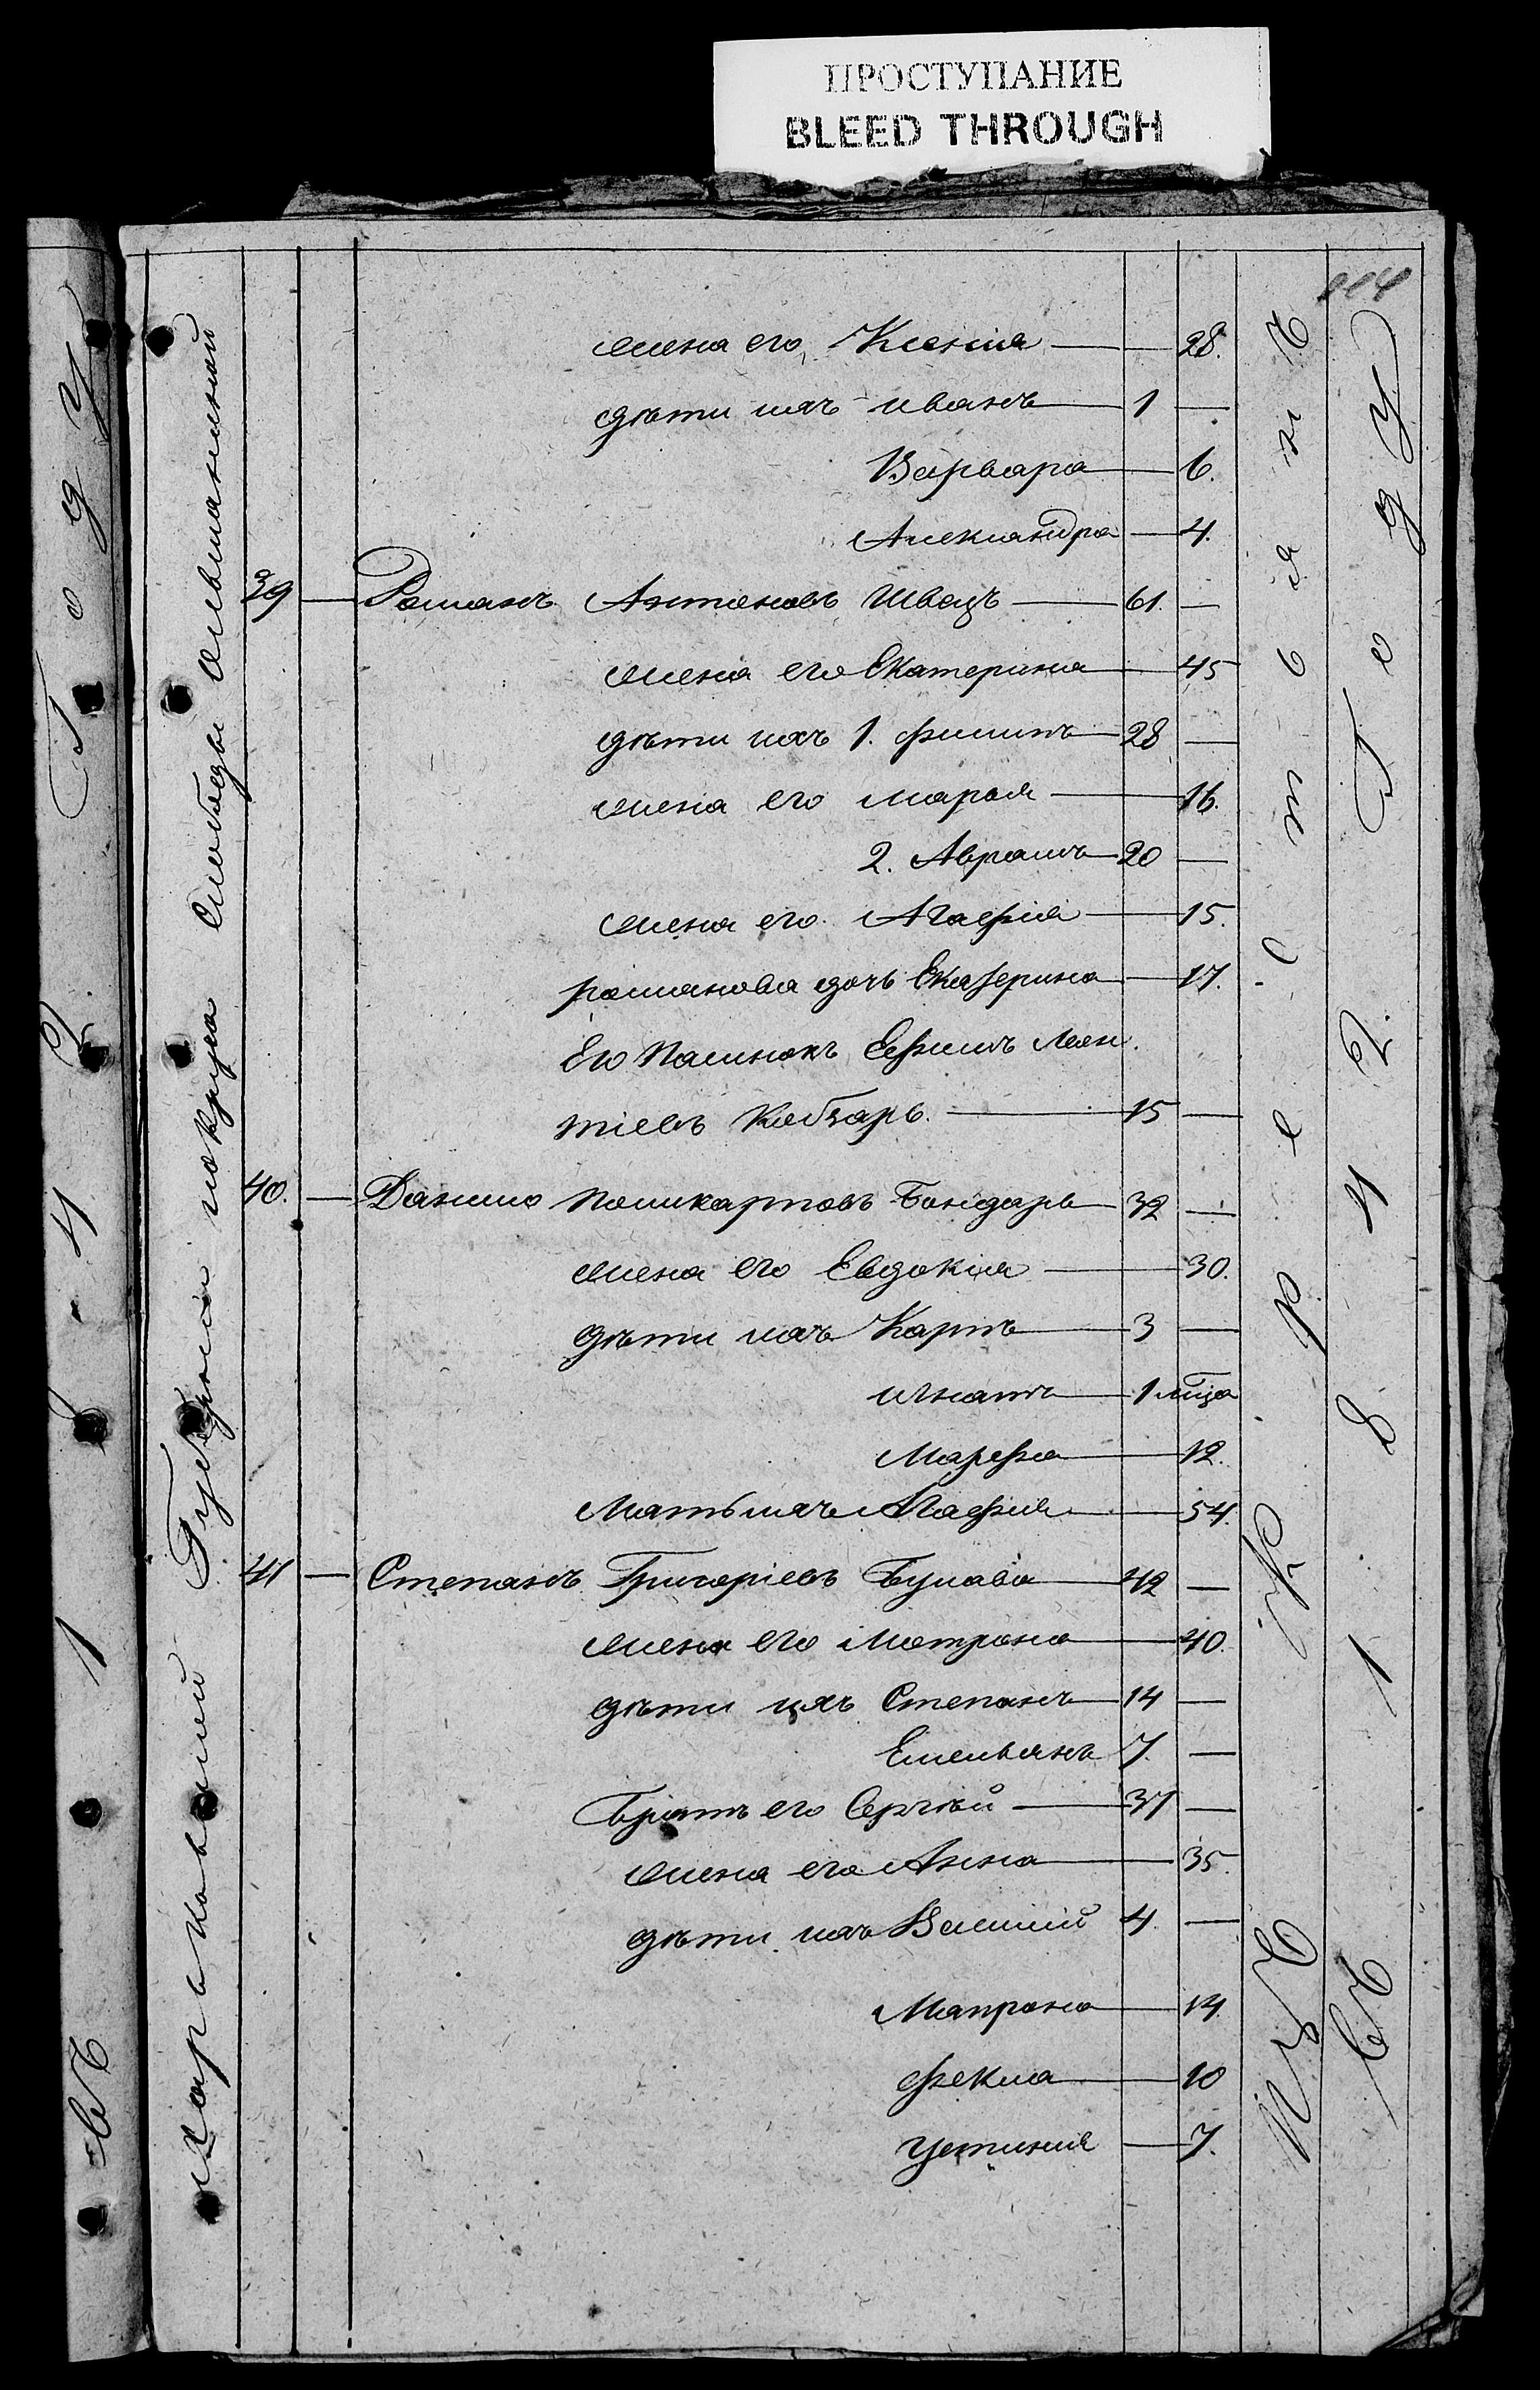 ПРОСТУПАНИЕ
BLEED THROUGH
жена его Ксенія 28.
дѣти ихъ Иванъ 1
Варвара 6.
Александра 4.
39 Романъ Антоновъ Швецъ 61.
жена его Екатерина 45
дѣти ихъ 1. Филипъ 28
жена его Марья 16.
2. Аврамъ 20
жена его Агафія 15.
Романова дочь Екатерина 17.
Его Племянокъ Ефимъ Леон
тіевъ Кобзарь. 15
40. Данило Поликарповъ Бондарь 32
жена его Евдокія 30.
дѣти ихъ Карпъ 3
Игнатъ 1 мѣца
Марфа 12.
Мать ихъ Агафія 54.
41 Степанъ Григоріевъ Булава 42
жена его Мотрона 40.
дѣти ихъ Степанъ 14
Емельянъ 7.
Братъ его Сергѣй 37
жена его Анна 35.
дѣти ихъ Василій 4.
Матрона 14.
Фекла 10
Устинія 7.
Харьковской Губерніи округа Слободы Ольшанской
изъ Крестьянъ
въ 1842. Году
въ 1842 Году